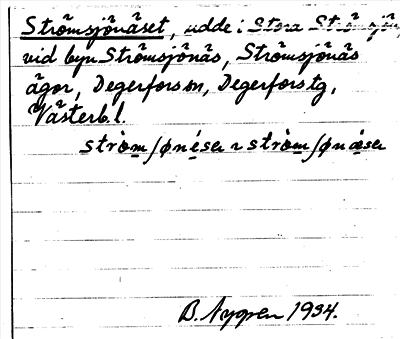 Strömsjönäset, udde i Stora Strömsjön,
vid byn Strömsjönäs, Strömsjönäs
ägor, Degerfors sn, Degerfors tg,
Västerb. l.
B. Nygren 1934.